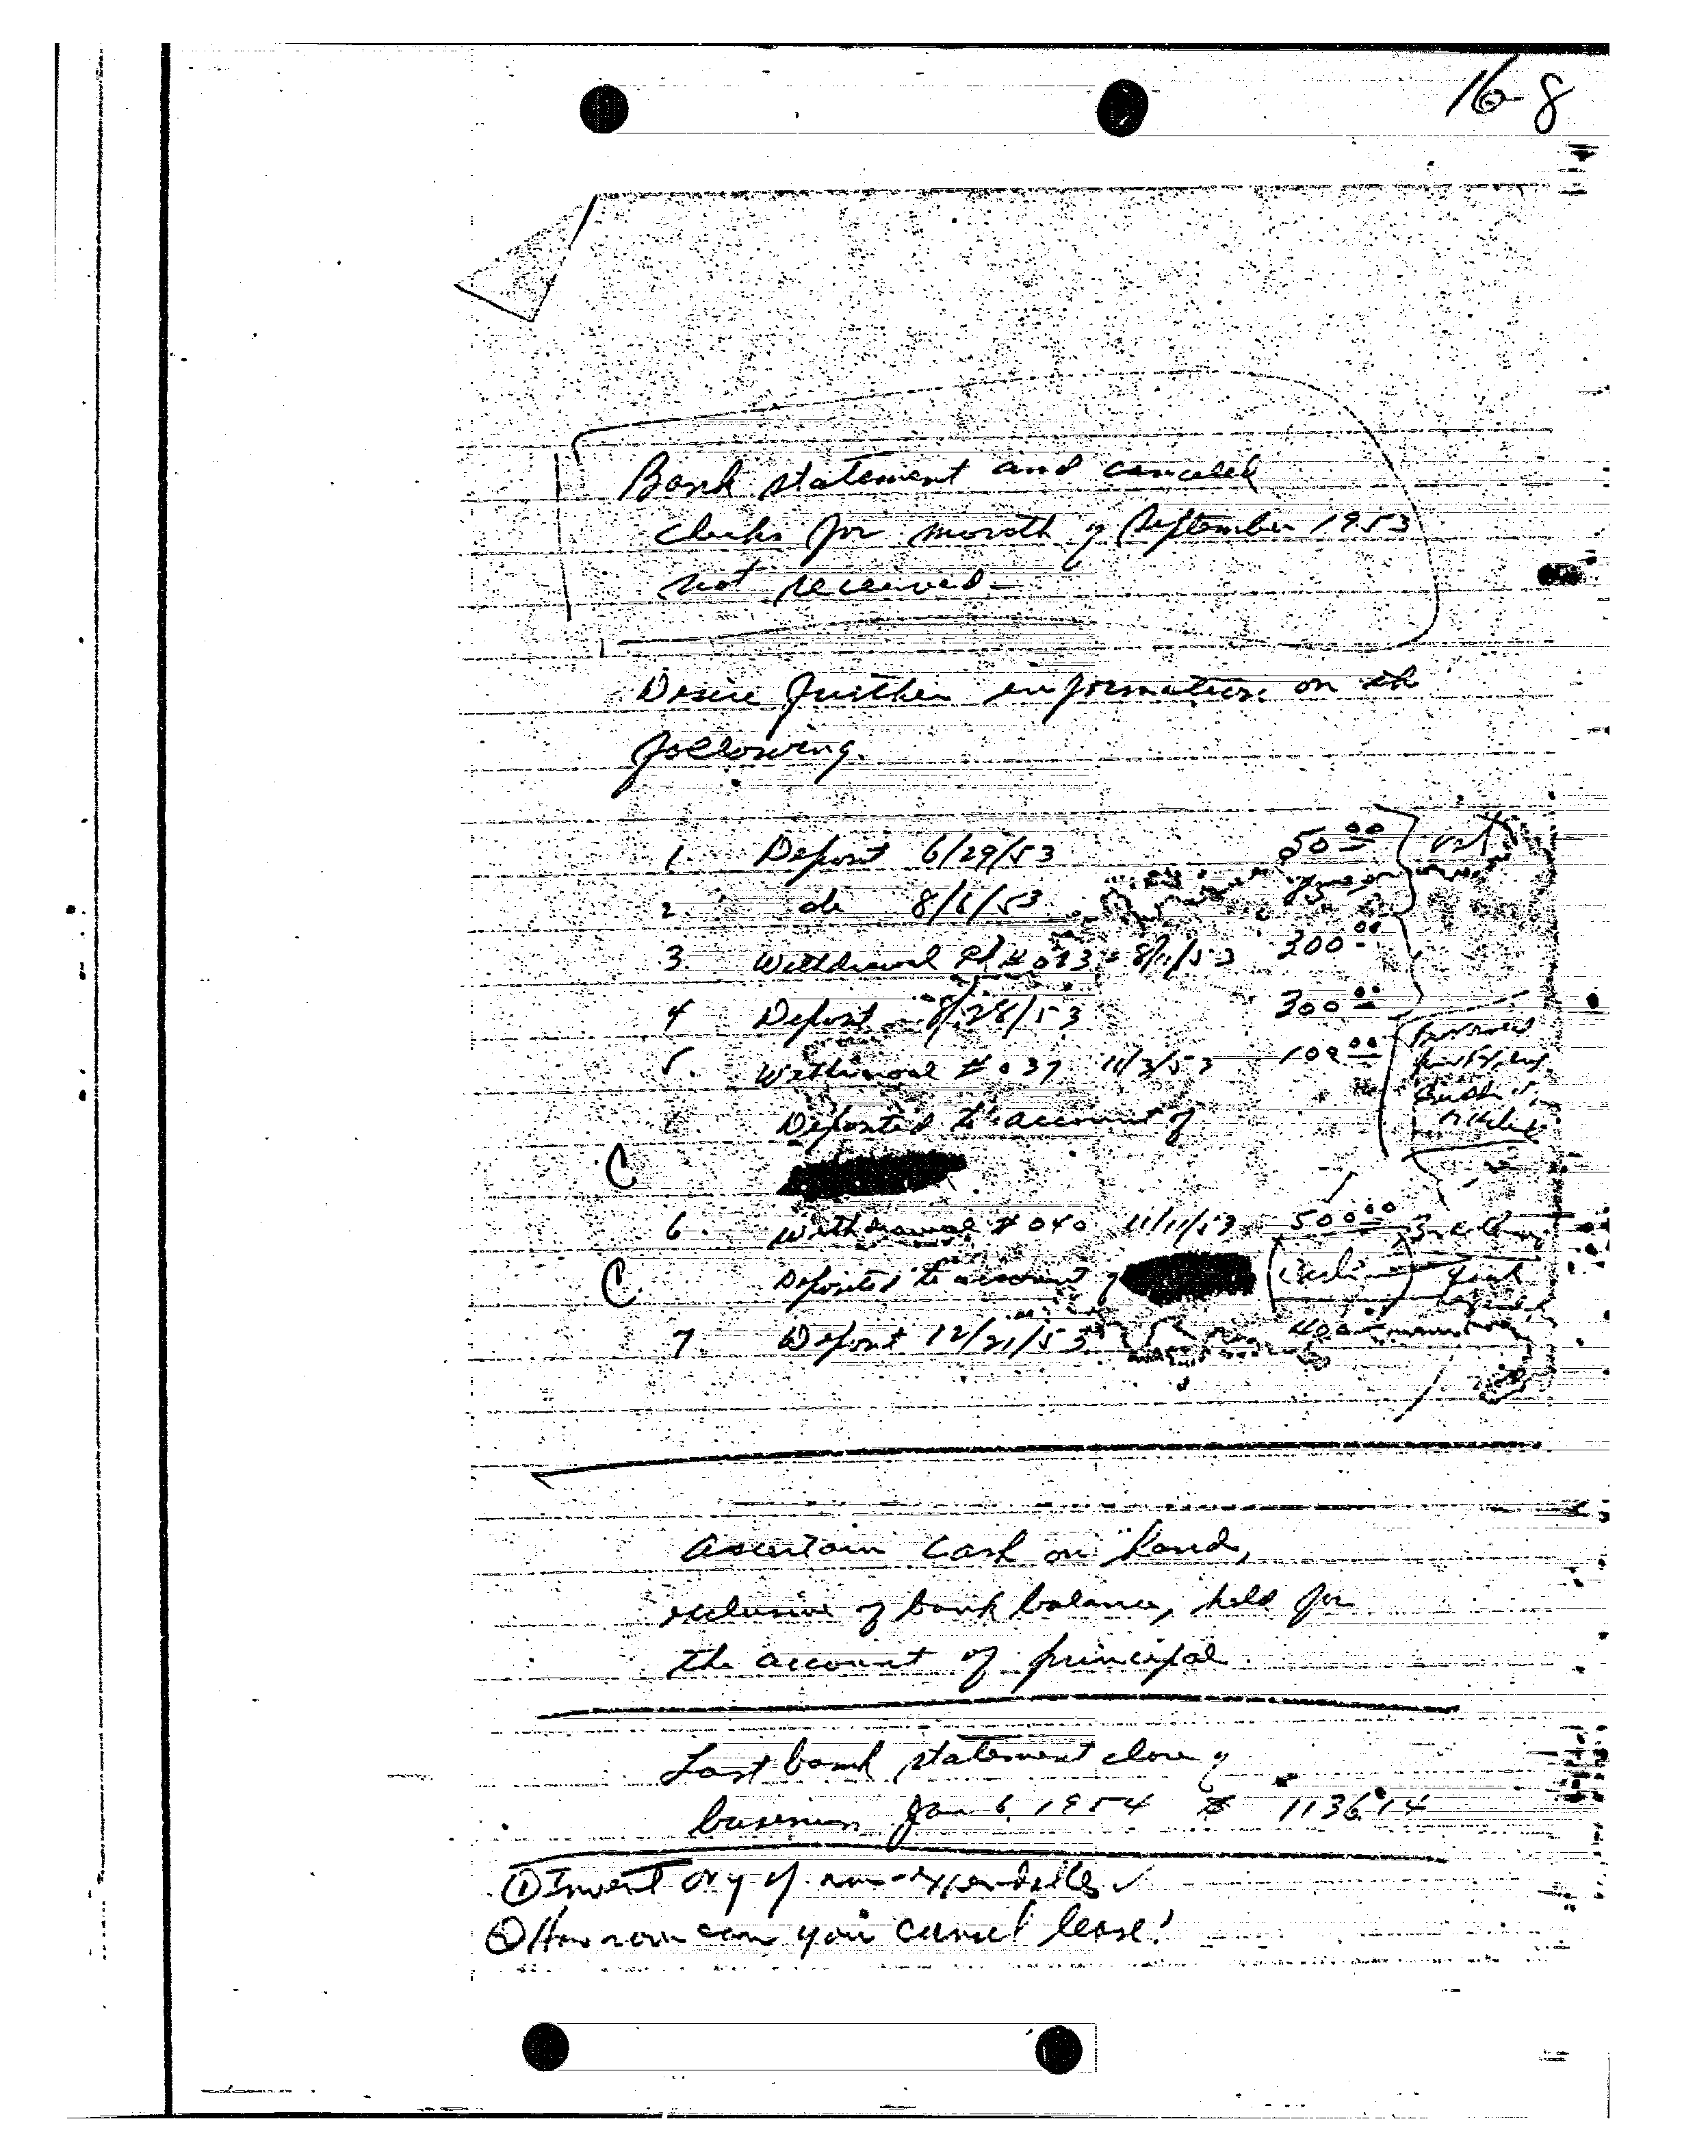 16-8
Bank statement and canceled
checks for month of September 1953
not received-
Desire further information on the
following.
1. Deposit 6/29/53 50 00
2 do 8/6/53
3. Withdrawal 8/11/53 300 00
4 Deposit 8/28/53 300 00
5. Withdrawal # 037 11/3/53 100 00
Deposited to account of
C
6. Withdrawal # 040 11/11/53 500 00
C Deposited to account of
7 Deposit 12/21/53
Ascertain cash on hand,
exclusive of bank balance, held for
the account of principal.
Last bank statement close of
business Jan 6, 1954 $ 1136.14
① Inventory of non-expendables ✓
② How soon can you cancel lease?